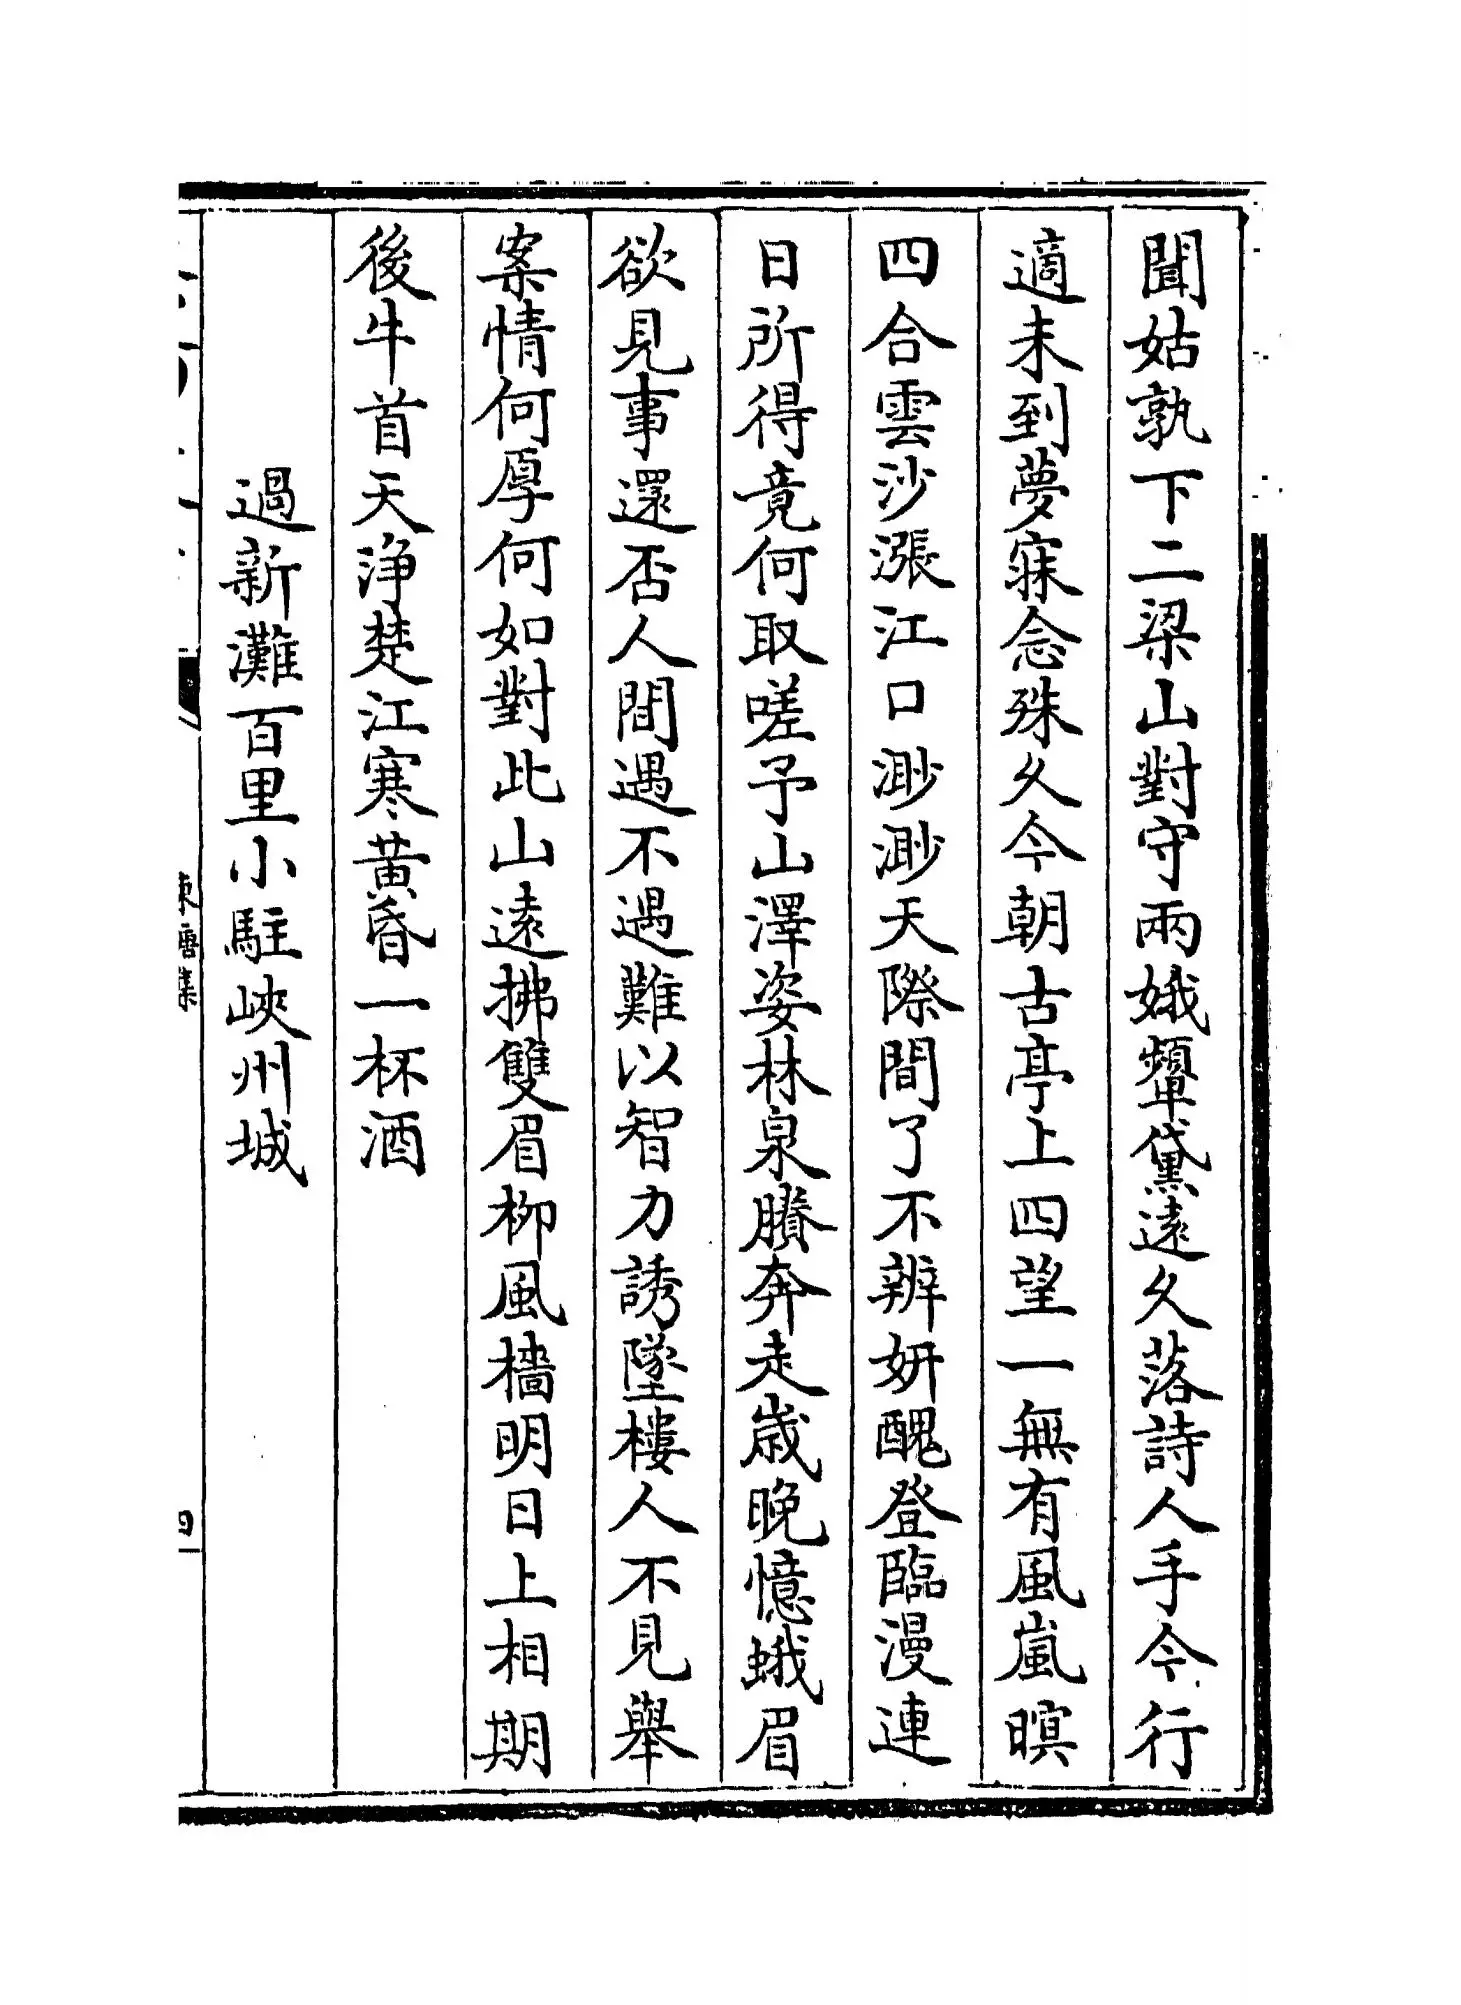 聞姑孰下二梁山對守兩娥顰黛遠久落詩人手今行
適未到夢寐念殊久今朝古亭上四望一無有風嵐暝
四合雲沙漲江口渺渺天際間了不辨妍醜登臨漫連
日所得竟何取嗟予山澤姿林泉賸奔走歲晚憶蛾眉
欲見事還否人間遇不遇難以智力誘墜樓人不見舉
案情何厚何如對此山遠拂雙眉柳風檣明日上相期
後牛首天淨楚江寒黃昏一杯酒
過新灘百里小駐峽州城
東塘集
四